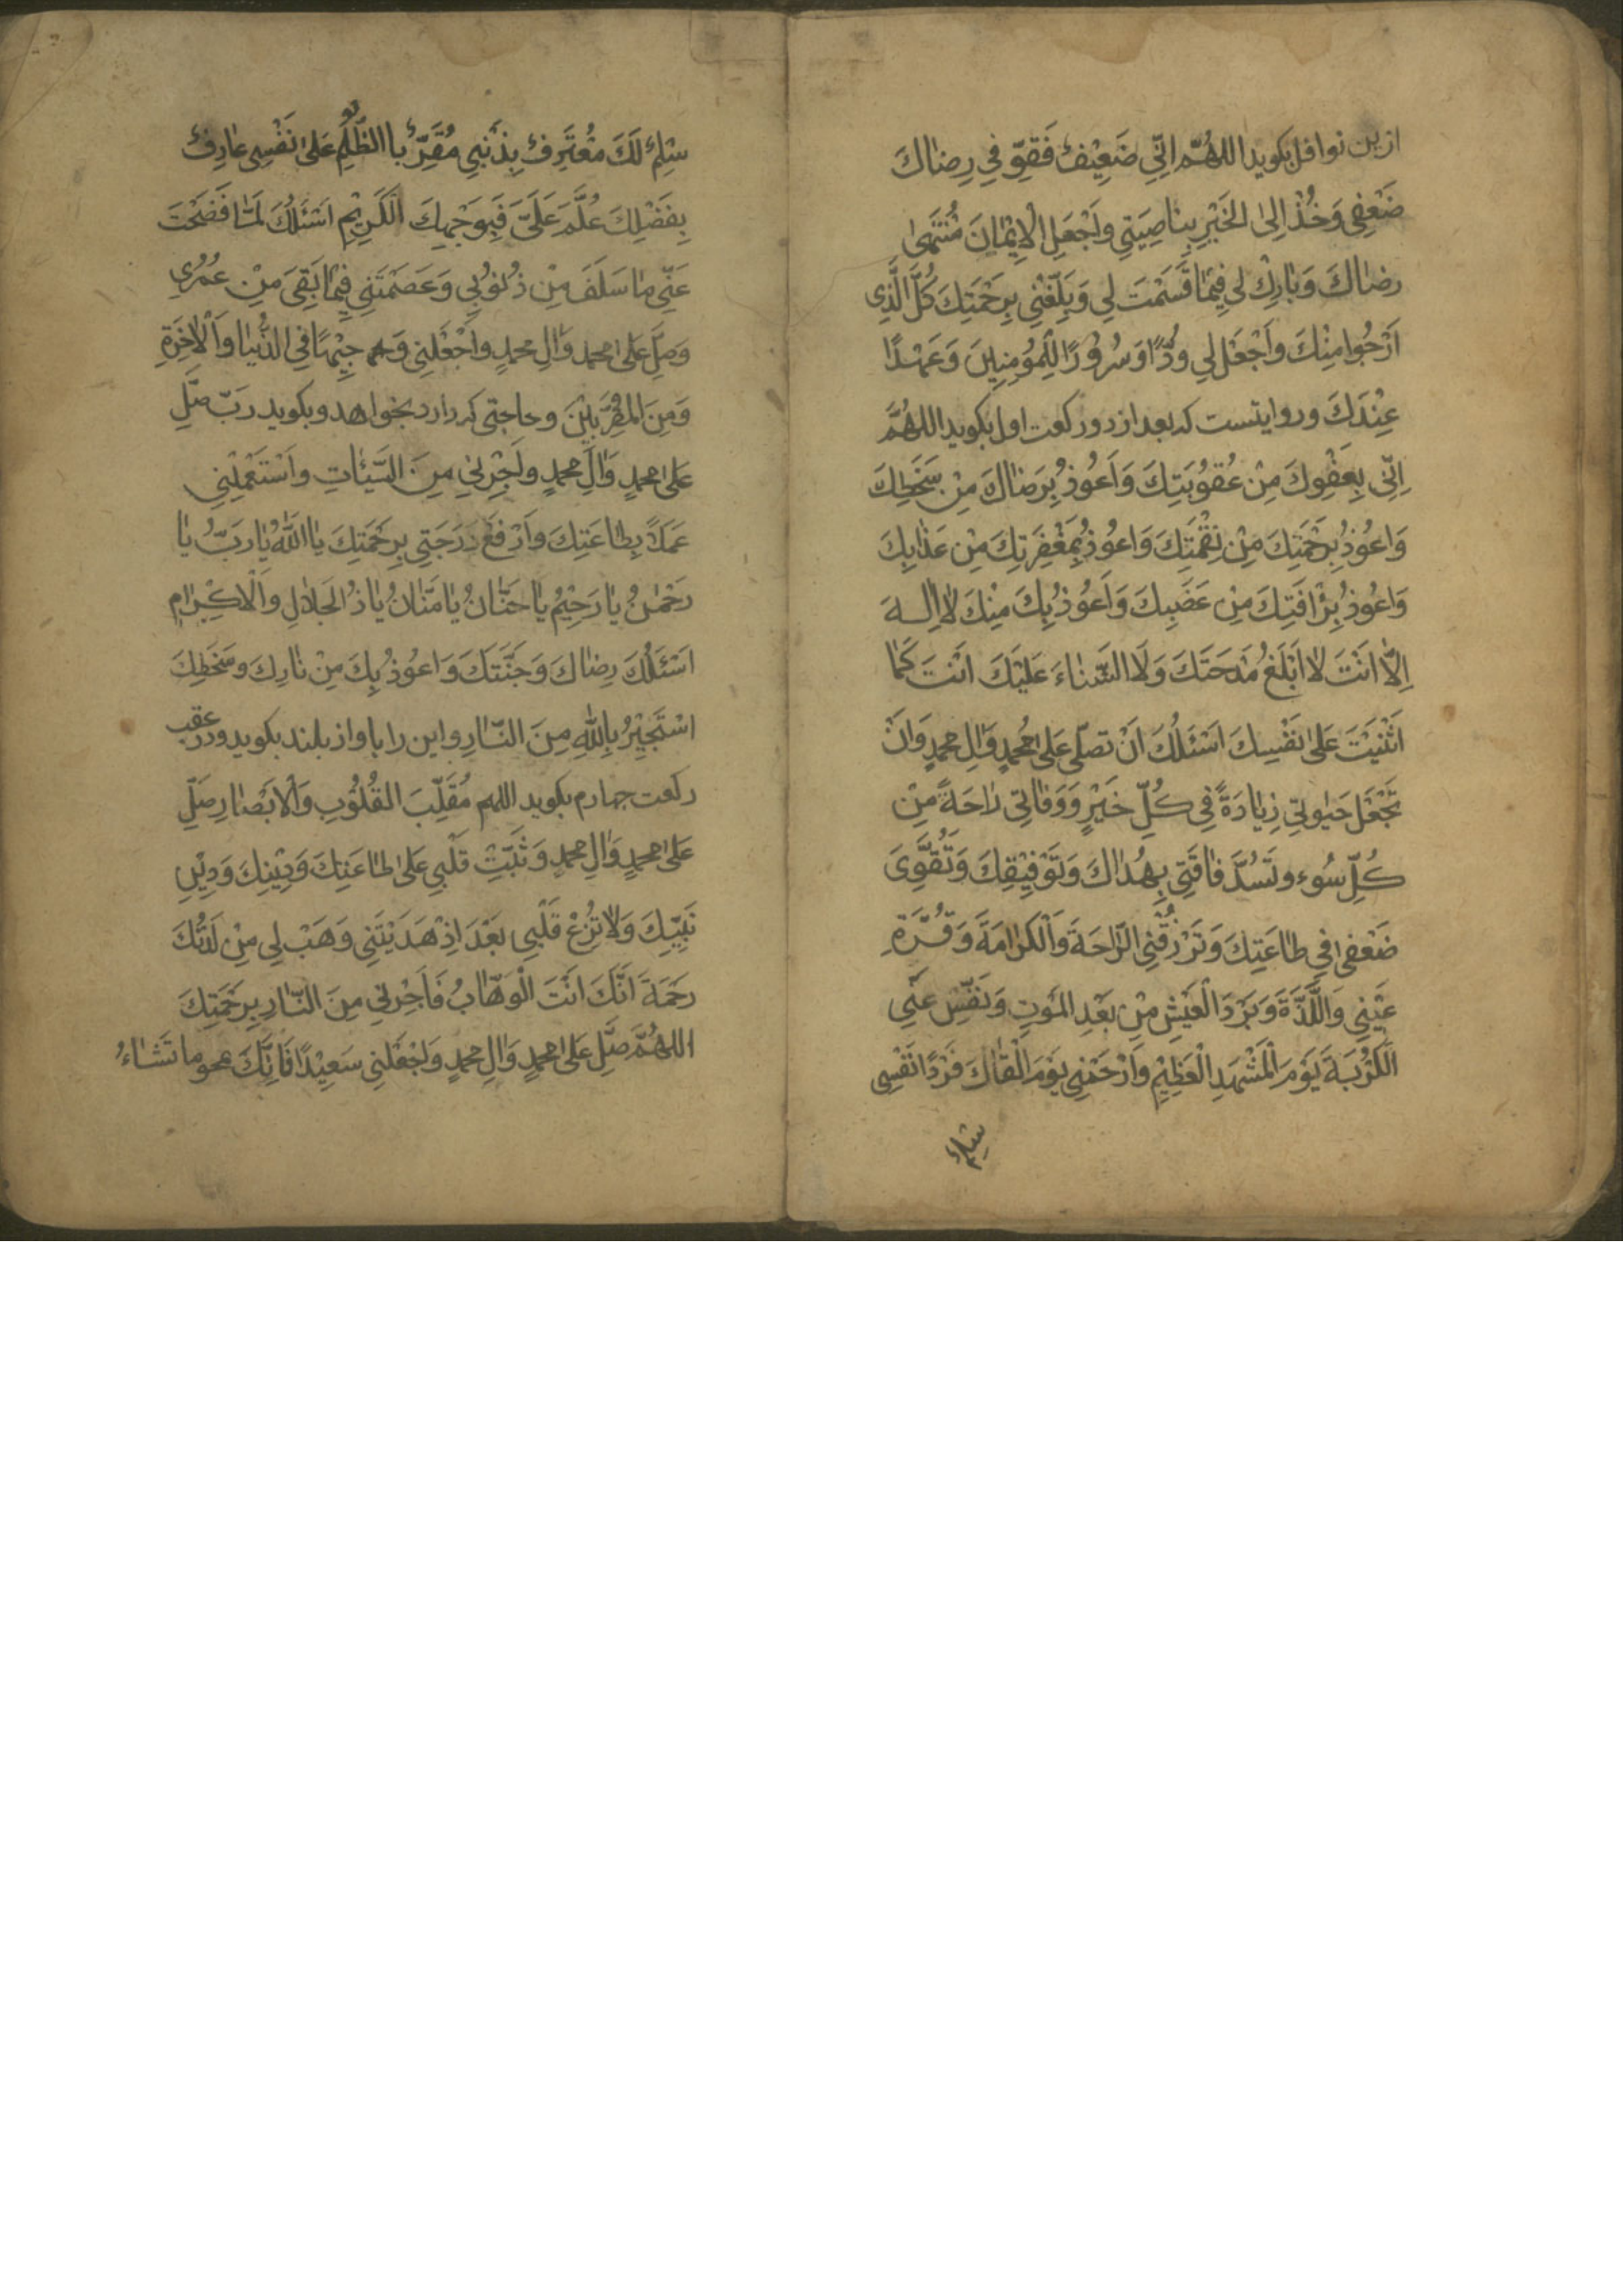 ازین نوافل بکوید اللهُمَّ اِنّي ضَعِيْفٌ فَقَوِّ فِي رِضاكَ
ضَعْفِي وَخُذْ اِلىٰ الخَيْرِ بِناصِيَتِي وَاجْعَلِ الْاِيْمانَ مُنْتَهىٰ
رِضاكَ وَبارِكْ لي فِيْمٰا قَسَمْتَ لِي وَبَلِّغْنِي بِرَحْمَتِكَ كُلَّ الَّذِي
اَرْجُوا مِنْكَ وَاجْعَلْ لي وُدًّا وَسُرُوْرًا لِلْمُؤمِنِينَ وَعَهْدًا
عِنْدَكَ وروایتست که بعد از دو رکعت اول بکوید اللهُمَّ
اِنّي بِعَفْوِكَ مِنْ عُقُوْبَتِكَ وَاَعُوْذُ بِرَضاكَ مِنْ سَخَطِكَ
وَاعُوْذُ بِرَحْمَتِكَ مِنْ نِقْمَتِكَ وَاعُوْذُ بِمَغْفِرَتِكَ مِنْ عَذابِكَ
وَاعُوْذُ بِرَأفَتِكَ مِنْ غَضَبِكَ وَاَعُوْذُ بِكَ مِنْكَ لا اِلٰهَ
اِلّا اَنْتَ لا اَبْلَغُ مَدْحَتَكَ وَلَا الثَّناءَ عَلَيْكَ اَنْتَ كَمٰا
اَثْنَيْتَ عَلىٰ نَفْسِكَ اَسْئَلُكَ اَنْ تصلّي عَلىٰ مُحمدٍ وَالِ محمدٍ وَاَنْ
تَجْعَلَ حَيٰوتِي زِيٰادَةً فِي كُلِّ خَيْرٍ وَوَفٰاتِي رٰاحَةً مِنْ
كُلِّ سُوءٍ وتَسُدَّ فٰاقَتِي بِهُداكَ وَتَوْفِيْقِكَ وَتُقَوِّيَ
ضَعْفِي فِي طاعَتِكَ وَتَرْزُقْنِي الرّاحَةَ وَالْكرامَةَ وَقُرَّةَ
عَيْنِي وَاللَّذَّةَ وَبَرْدَ الْعَيْشِ مِنْ بَعْدِ المَوْتِ وَنَفِّسْ عَنّي
الكُرْبَةَ يَوْمَ الْمَشْهَدِ الْعَظِيْمِ وَارْحَمْنِي يَوْمَ الْقٰاكَ فَرْدًا نَفْسِي
سِلِمٌ
سِلِمٌ لَكَ مُعْتَرِفٌ بِذَنْبِي مُقِرٌّ بِا الظُّلْمِ عَلىٰ نَفْسِي عارِفٌ
بِفَضْلِكَ عُلَّمَ عَلَيَّ فَبِوَجْهِكَ الْكَرِيْمِ اَسْئَلُكَ لَمّا فَضَحْتَ
عَنّي ما سَلَفَ مِنْ ذُنُوْبِي وَعَصَمْتَنِي فِيْمٰا بَقِيَ مِنْ عُمُرِي
وَصَلِّ عَلىٰ محمد وَالِ محمدٍ وَاجْعَلْنِي وَجِيْهًا فِي الدُّنْيٰا وَالْاخِرَةِ
وَمِنَ المُقَرَّبِيْنَ وحاجتی که دارد بخواهد وبکوید ربّ صَلِّ
عَلىٰ محمدٍ وَالِ محمدٍ وَاَجِرْنِي مِنَ السَّيِّئٰاتِ وَاسْتَعْمِلْنِي
عَمَلاً بِطاعَتِكَ وَارْفَعْ دَرَجَتِي بِرَحْمَتِكَ يٰا اَللّٰهُ يٰا رَبُّ يٰا
رَحْمٰنُ يٰا رَحِيْمُ يٰا حَنّانُ يٰا مَنّانُ يٰا ذُ الْجَلالِ وَالْاِكْرٰامِ
اَسْئَلُكَ رِضاكَ وَجَنَّتَكَ وَاعُوْذُ بِكَ مِنْ نٰارِكَ وسَخَطِكَ
اسْتَجِيْرُ بِاللّٰهِ مِنَ النّارِ واین را باواز بلند بکوید ودر عقب
رکعت چهارم بکوید اللهم مُقَلِّبَ القُلُوْبِ وَالاَبْصٰارِ صَلِّ
عَلىٰ محمدٍ وَالِ محمدٍ وَثَبِّتْ قَلْبِي عَلىٰ طاعَتِكَ وَدِيْنِكَ وَدِيْنِ
نَبِيِّكَ وَلا تُزِغْ قَلْبِي بَعْدَ اِذْ هَدَيْتَنِي وَهَبْ لِي مِنْ لَدُنْكَ
رحْمَةً اَنَّكَ اَنْتَ الْوَهّابُ فَاَجِرْنِي مِنَ النّارِ بِرَحْمَتِكَ
اللهُمَّ صَلِّ عَلىٰ محمدٍ وَالِ محمدٍ وَاجْعَلْنِي سَعِيْدًا فَاِنَّكَ تمحو ما تَشاءُ